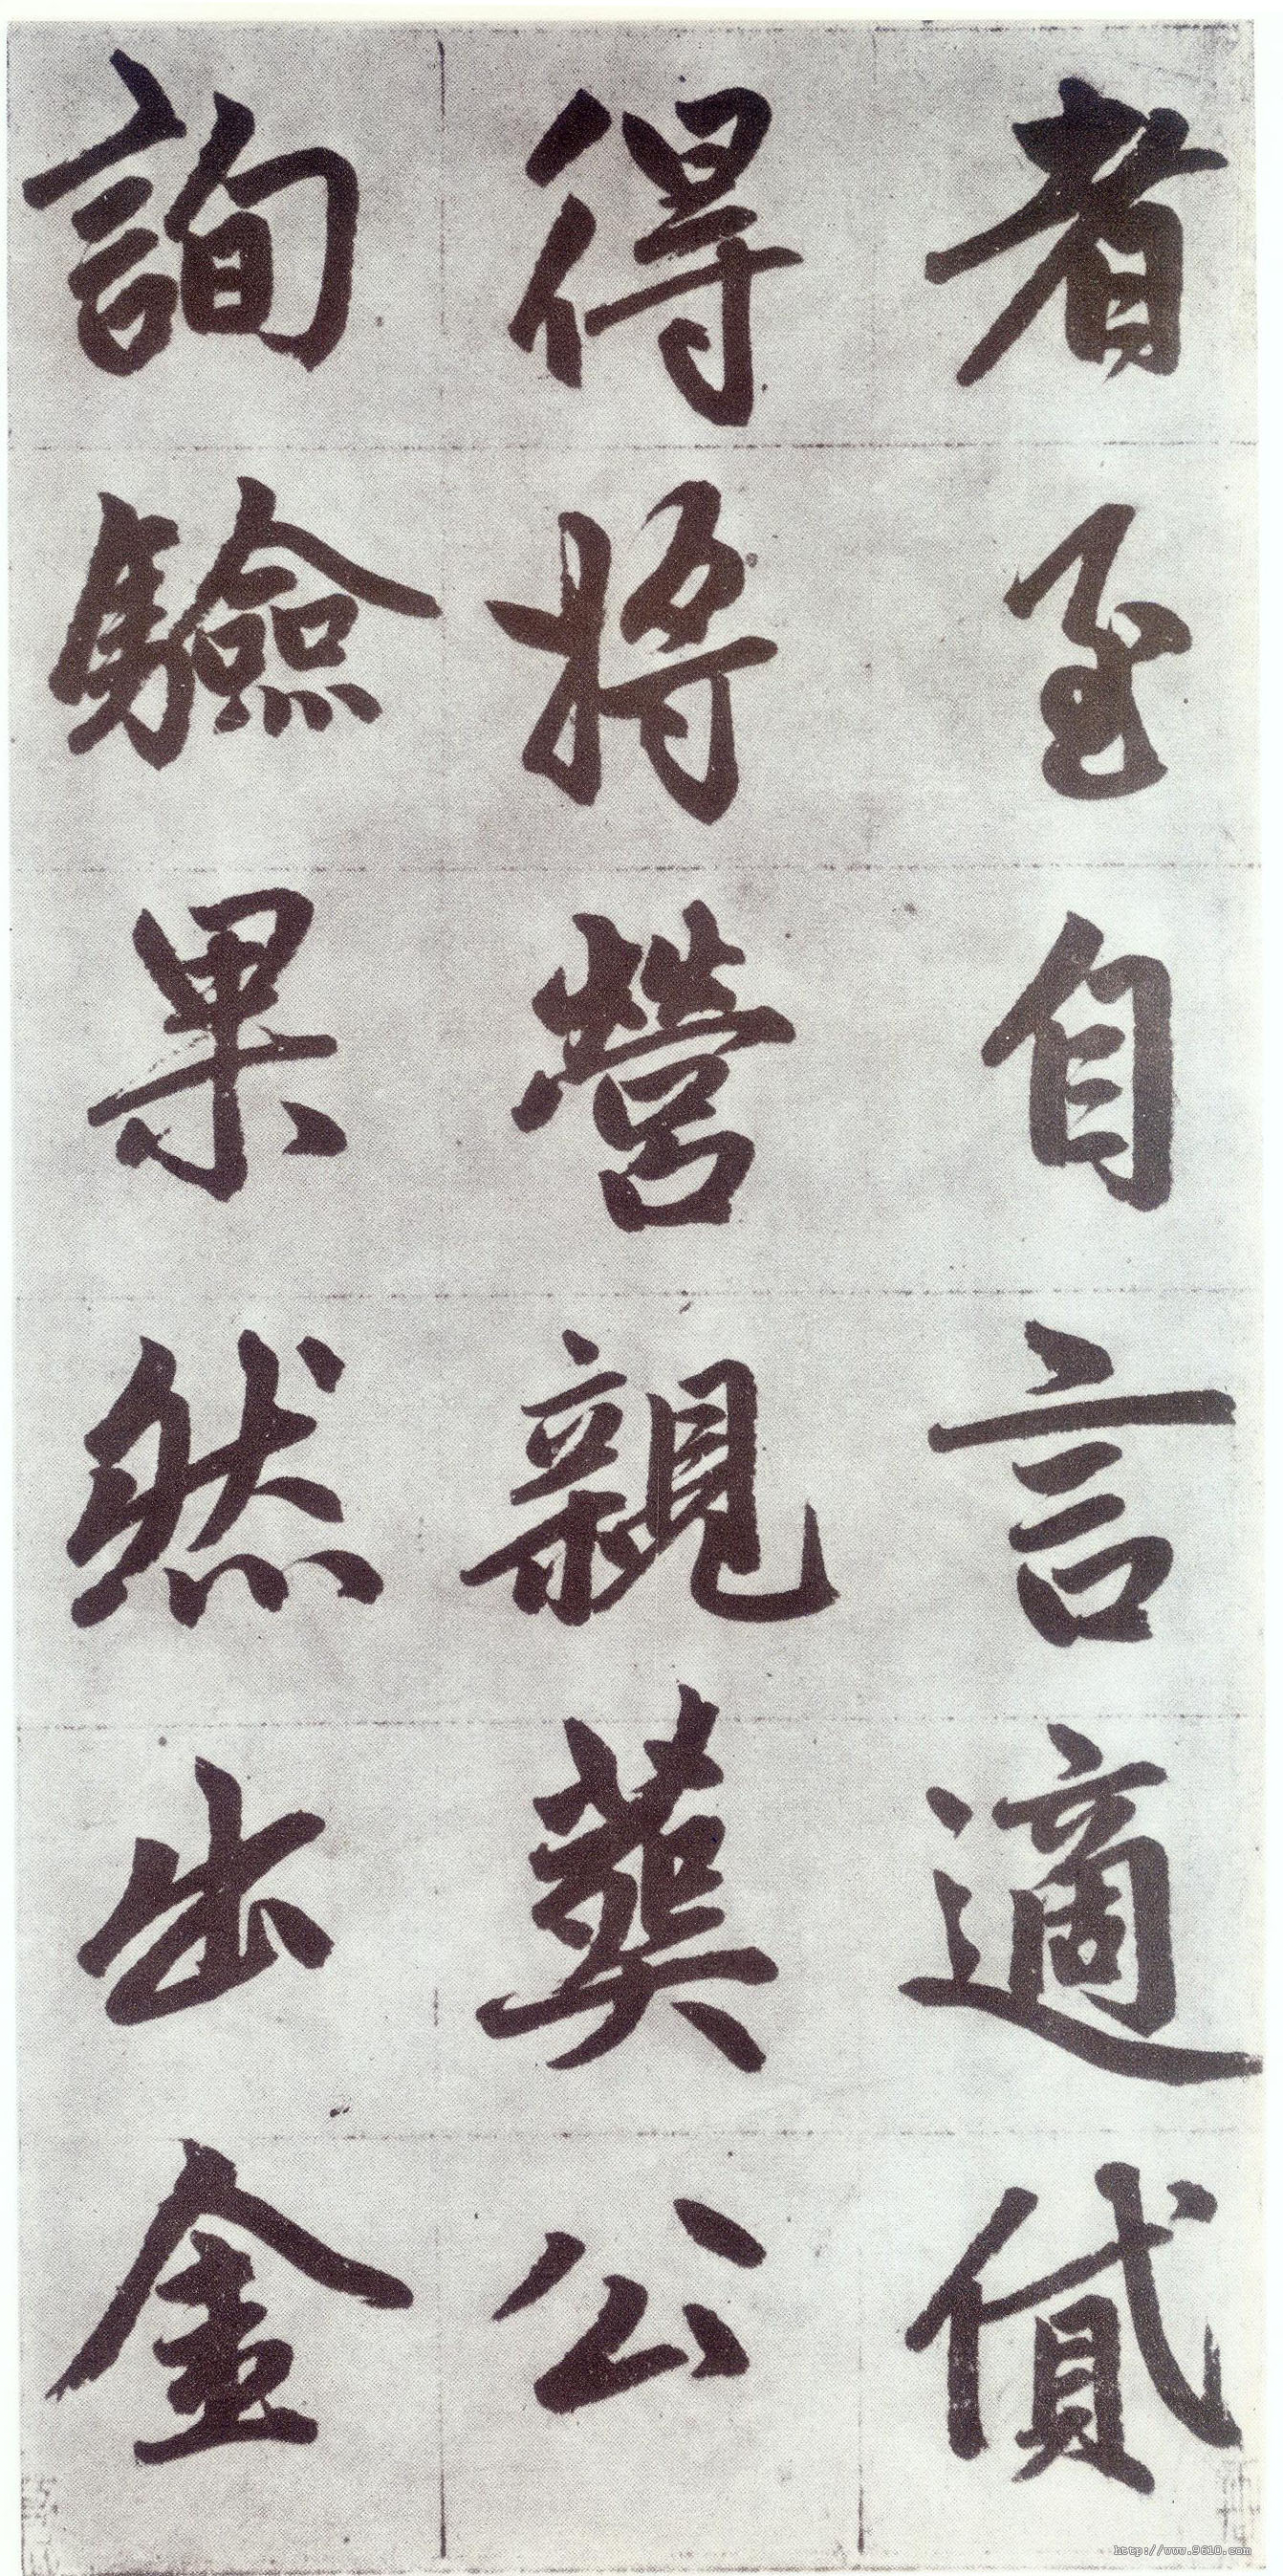 者至自言適貸
得將營親葬公
詢驗果然出金
http://www.9610.com